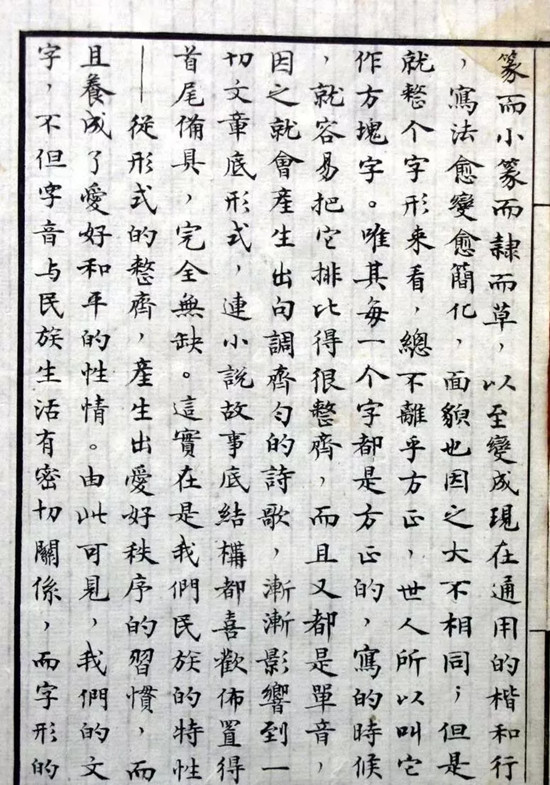 篆而小篆而隸而草，以至變成現在通用的楷和行
，寫法愈變愈簡化，面貌也因之大不相同；但是
就整个字形來看，總不離乎方正，世人所以叫它
作方塊字。唯其每一个字都是方正的，寫的時候
，就容易把它排比得很整齊，而且又都是單音，
因之就會產生出句調齊勻的詩歌，漸漸影響到一
切文章底形式，連小說故事底結構都喜歡佈置得
首尾備具，完全無缺。這實在是我們民族的特性
——從形式的整齊，產生出愛好秩序的習慣，而
且養成了愛好和平的性情。由此可見，我們的文
字，不但字音与民族生活有密切關係，而字形的